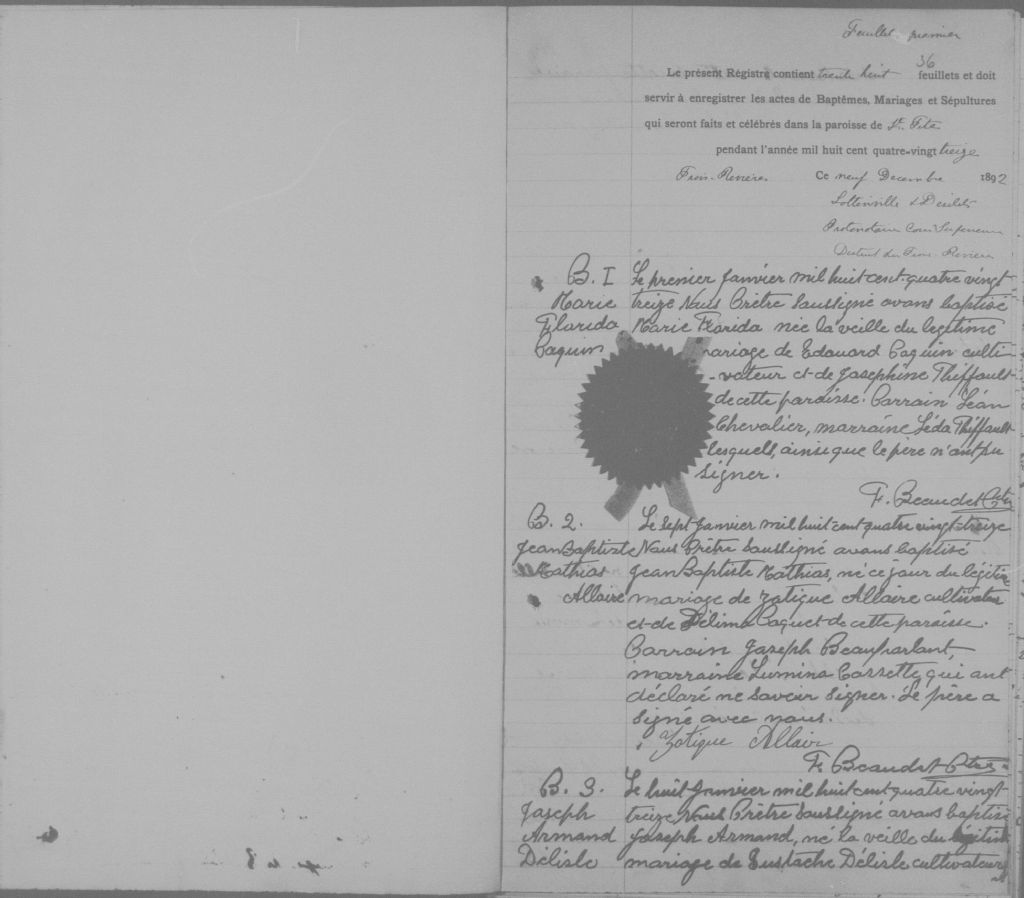 Feuillet premier
Le présent Registre contient trente huit 36 feuillets et doit
servir à enregistrer les actes de Baptêmes, Mariages et Sépultures
qui seront faits et célébrés dans la paroisse de St. Tite
pendant l'année mil huit cent quatre-vingt treize
Trois-Rivières Ce neuf Decembre 1892
Lottinville & Désilets
Protonotaire Cour Superieure
District des Trois-Rivières
B. I Le premier Janvier mil huit-cent-quatre vingt-
Marie treize Nous Prêtre soussigné avons baptisé
Florida Marie Florida née la veille du légitime
Paquin mariage de Edouard Paquin culti
-vateur et de Josephine Thiffault
de cette paroisse. Parrain Léon
Chevalier, marraine Léda Thiffault
lesquels, ainsi que le père n'ont pu
signer.
F. Beaudet Ptre
B. 2. Le sept Janvier mil huit-cent quatre vingt-treize
Jean Baptiste Nous Prêtre soussigné avons baptisé
Mathias Jean Baptiste Mathias, né ce jour du légitime
Allaire mariage de Zotique Allaire cultivateur
et de Délima Paquet de cette paroisse.
Parrain Joseph Beauparlant,
marraine Lumina Cossette, qui ont
déclaré ne savoir signer. Le père a
signé avec nous.
Zotique Allair
F. Beaudet Ptre
B. 3. Le huit Janvier mil huit cent quatre vingt
Joseph treize, Nous Prêtre soussigné avons baptisé
Armand Joseph Armand, né la veille du légitime
Délisle mariage de Eustache Délisle cultivateur